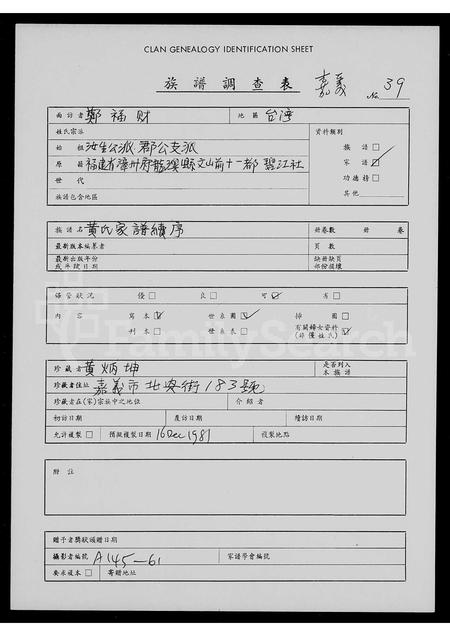 CLAN GENEALOGY IDENTIFICATION SHEET
族譜調查表 嘉義 No 39
面訪者 鄭福財 地區 台湾
姓氏宗派 資料類別
始祖 汝生公派 郡公支派 族譜 □
原籍 福建省漳州府龍溪縣文山前十一都碧江社 家譜 ☑
世代 功德榜 □
族譜包含地區 其他
族譜名 黄氏家譜續序 冊卷數 冊 卷
最新版本編纂者 頁數
最新出版年份 缺冊缺頁
或年號日期 部份損壞
保管狀況 優 □ 良 □ 可 ☑ 有 □
內容 寫本 ☑ 世系圖 ☑ 掃圖 □
刊本 □ 世系表 □ 有關婦女資料 ☑
(非僅姓氏)
珍藏者 黃炳坤 是否列入
本族譜
珍藏者住址 嘉義市北興街183號
珍藏者在(家)宗族中之地位 介紹者
初訪日期 產訪日期 續訪日期
允許複製 □ 預擬複製日期 16 Dec 1981 複製地點
附註
贈予者獎狀頒贈日期
攝影者編號 A145-61 家譜學會編號
要求複本 □ 寄贈地址
FamilySearch